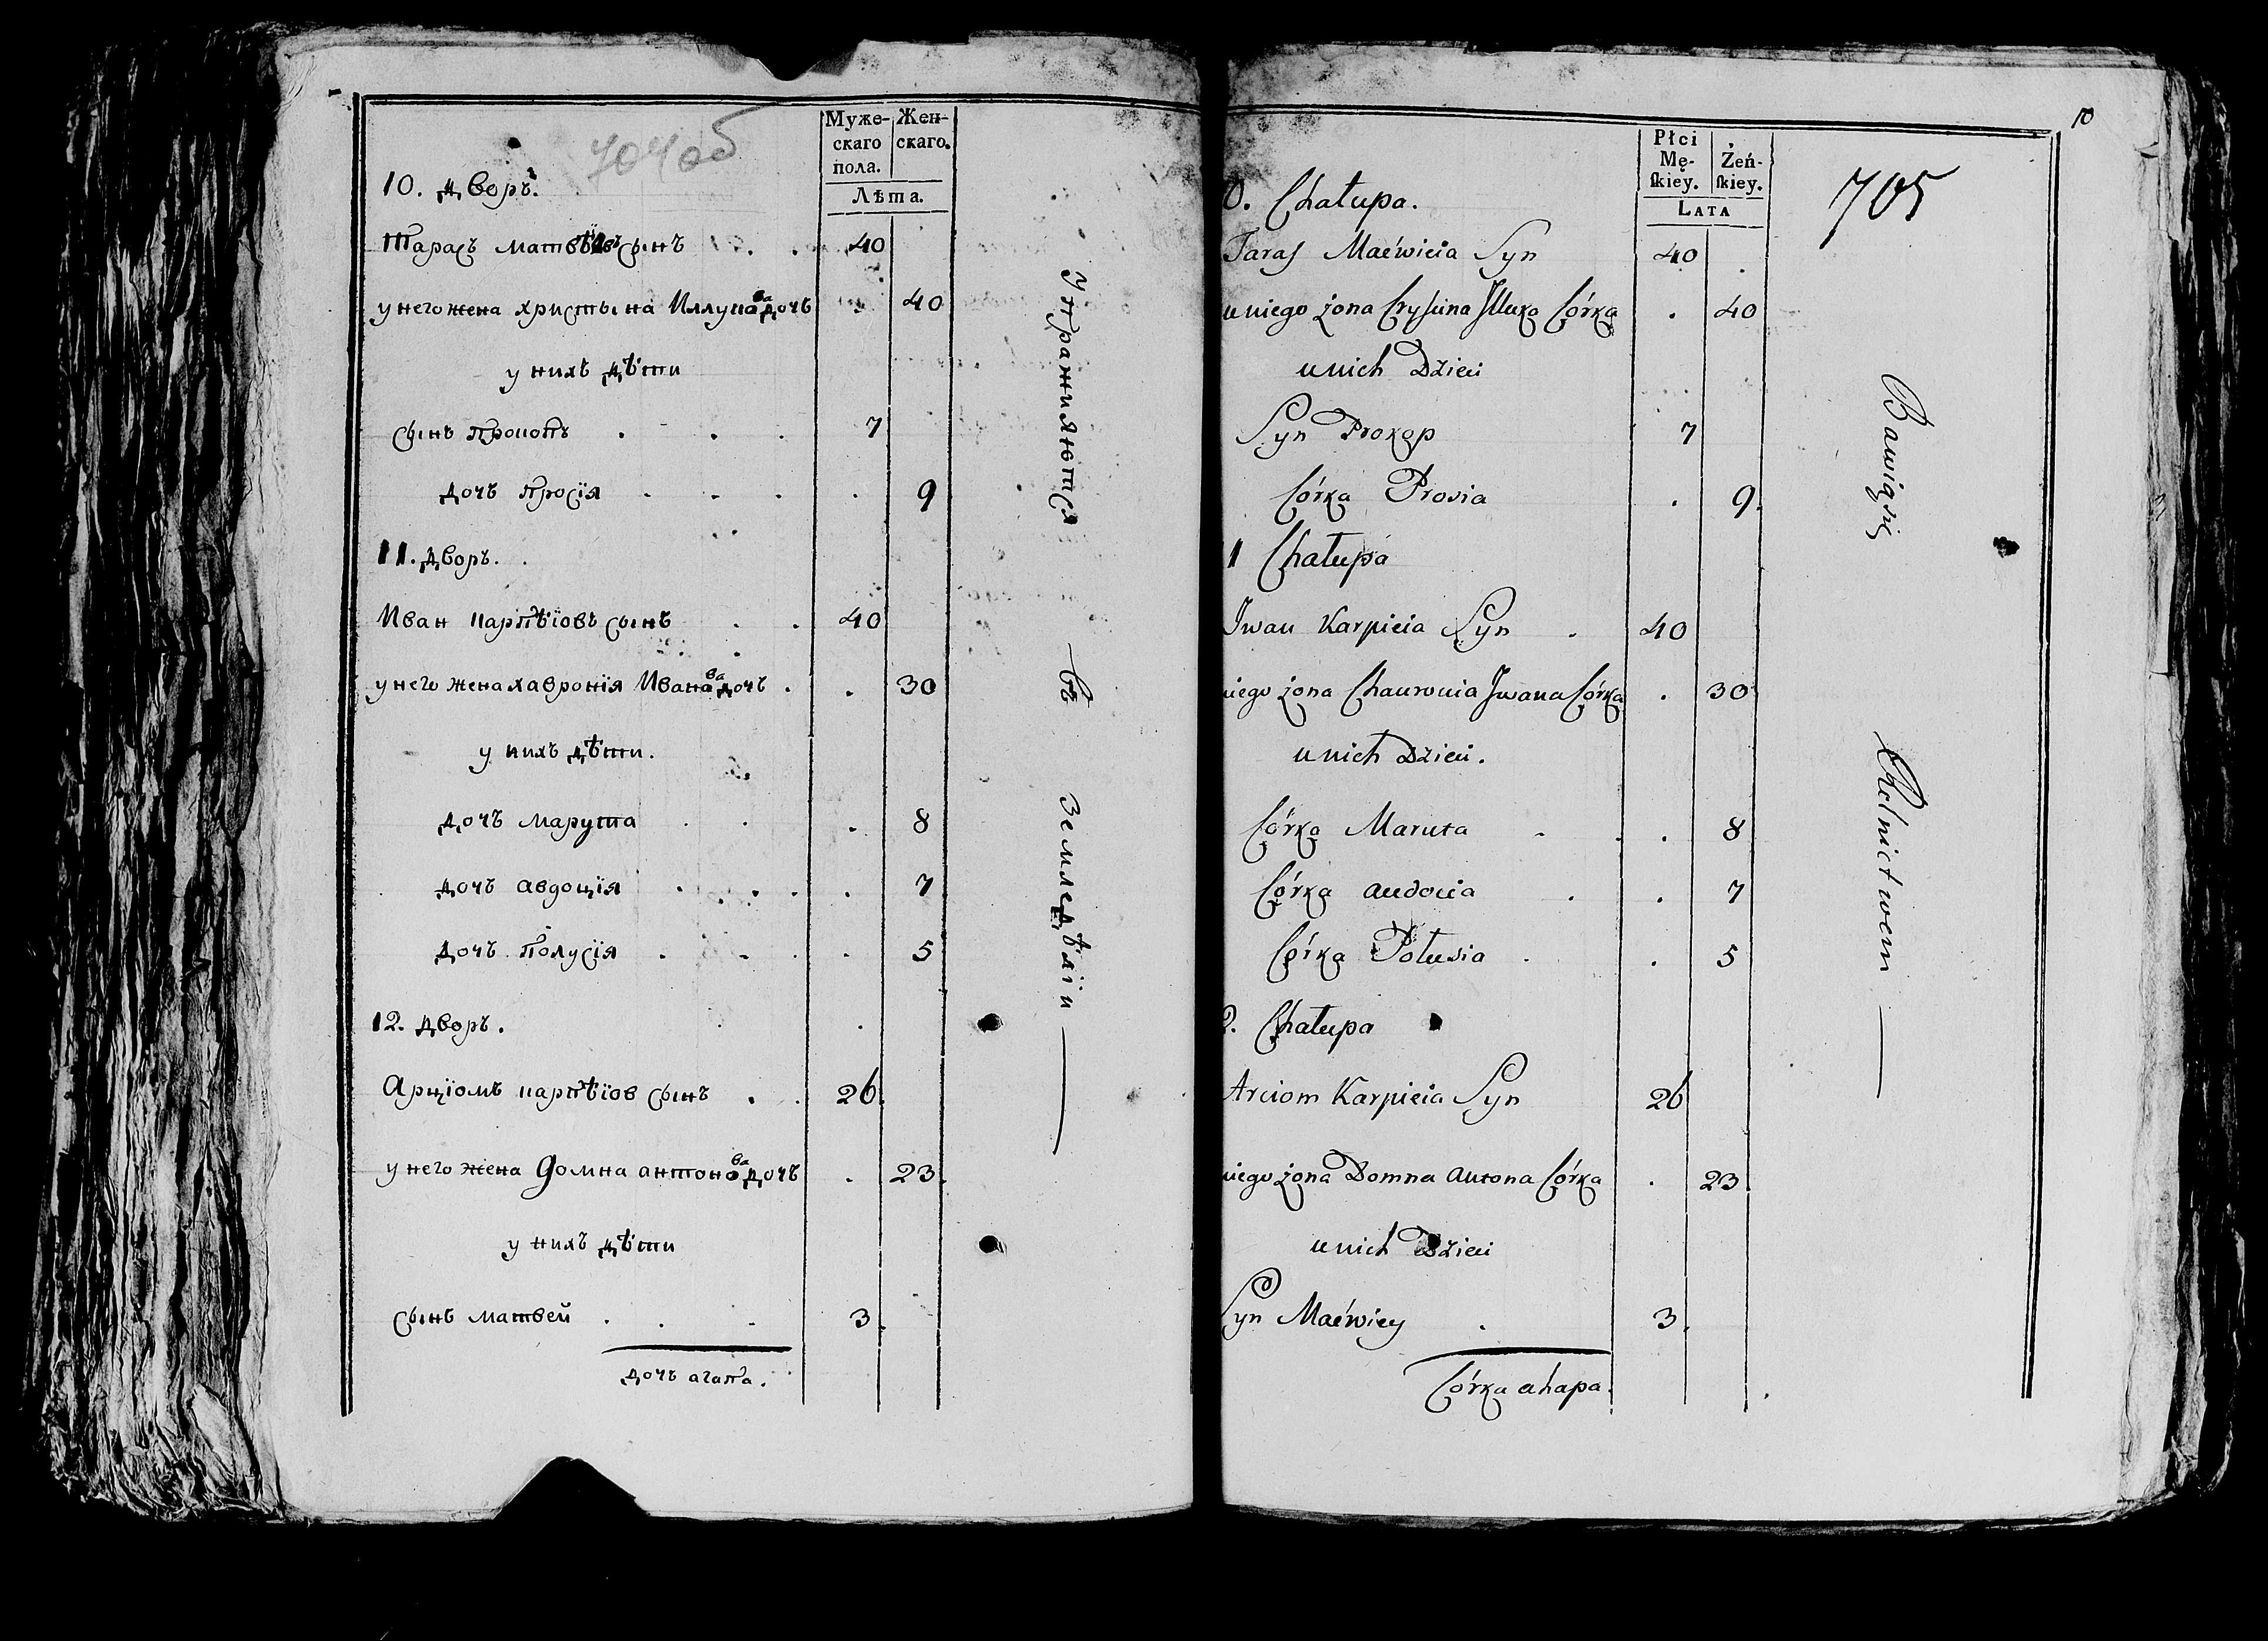 704об
Муже-
скаго
пола.
Жен-
скаго.
Лѣта.
10. дворъ.
Тарасъ матвѣевъ сынъ 40
у него жена христына Иллукова дочъ 40
у нихъ дѣти
сынъ прокопъ 7
дочъ просія 9
11. дворъ.
Иван карпѣіовъ сынъ 40
у него жена хавронія Иванова дочъ 30
у нихъ дѣти.
дочъ марута 8
дочъ авдоція 7
дочъ полусія 5
12. дворъ.
Арціомъ карпѣіов сынъ 26
у него жена домна антонова дочъ 23
у нихъ дѣти
сынъ матвей 3
дочъ агапа.
упражняются въ земледѣліи
10
705
Płci
Mę-
skiey.
Żeń-
skiey.
LATA
0. Chałupa.
Taras Maćwieia Syn 40
u niego żona Chrystina Illuka Córka 40
u nich Dzieci
Syn Prokop 7
Córka Prosia 9
1 Chałupa
Iwan Karpieia Syn 40
niego żona Chauronia Iwana Córka 30
u nich Dzieci.
Córka Maruta 8
Córka audocia 7
Córka Połusia 5
2. Chałupa
Arciom Karpieia Syn 26
niego żona Domna antona Córka 23
u nich Dzieci
Syn Maćwiey 3
Córka ahapa.
Bawią się Rolnictwem